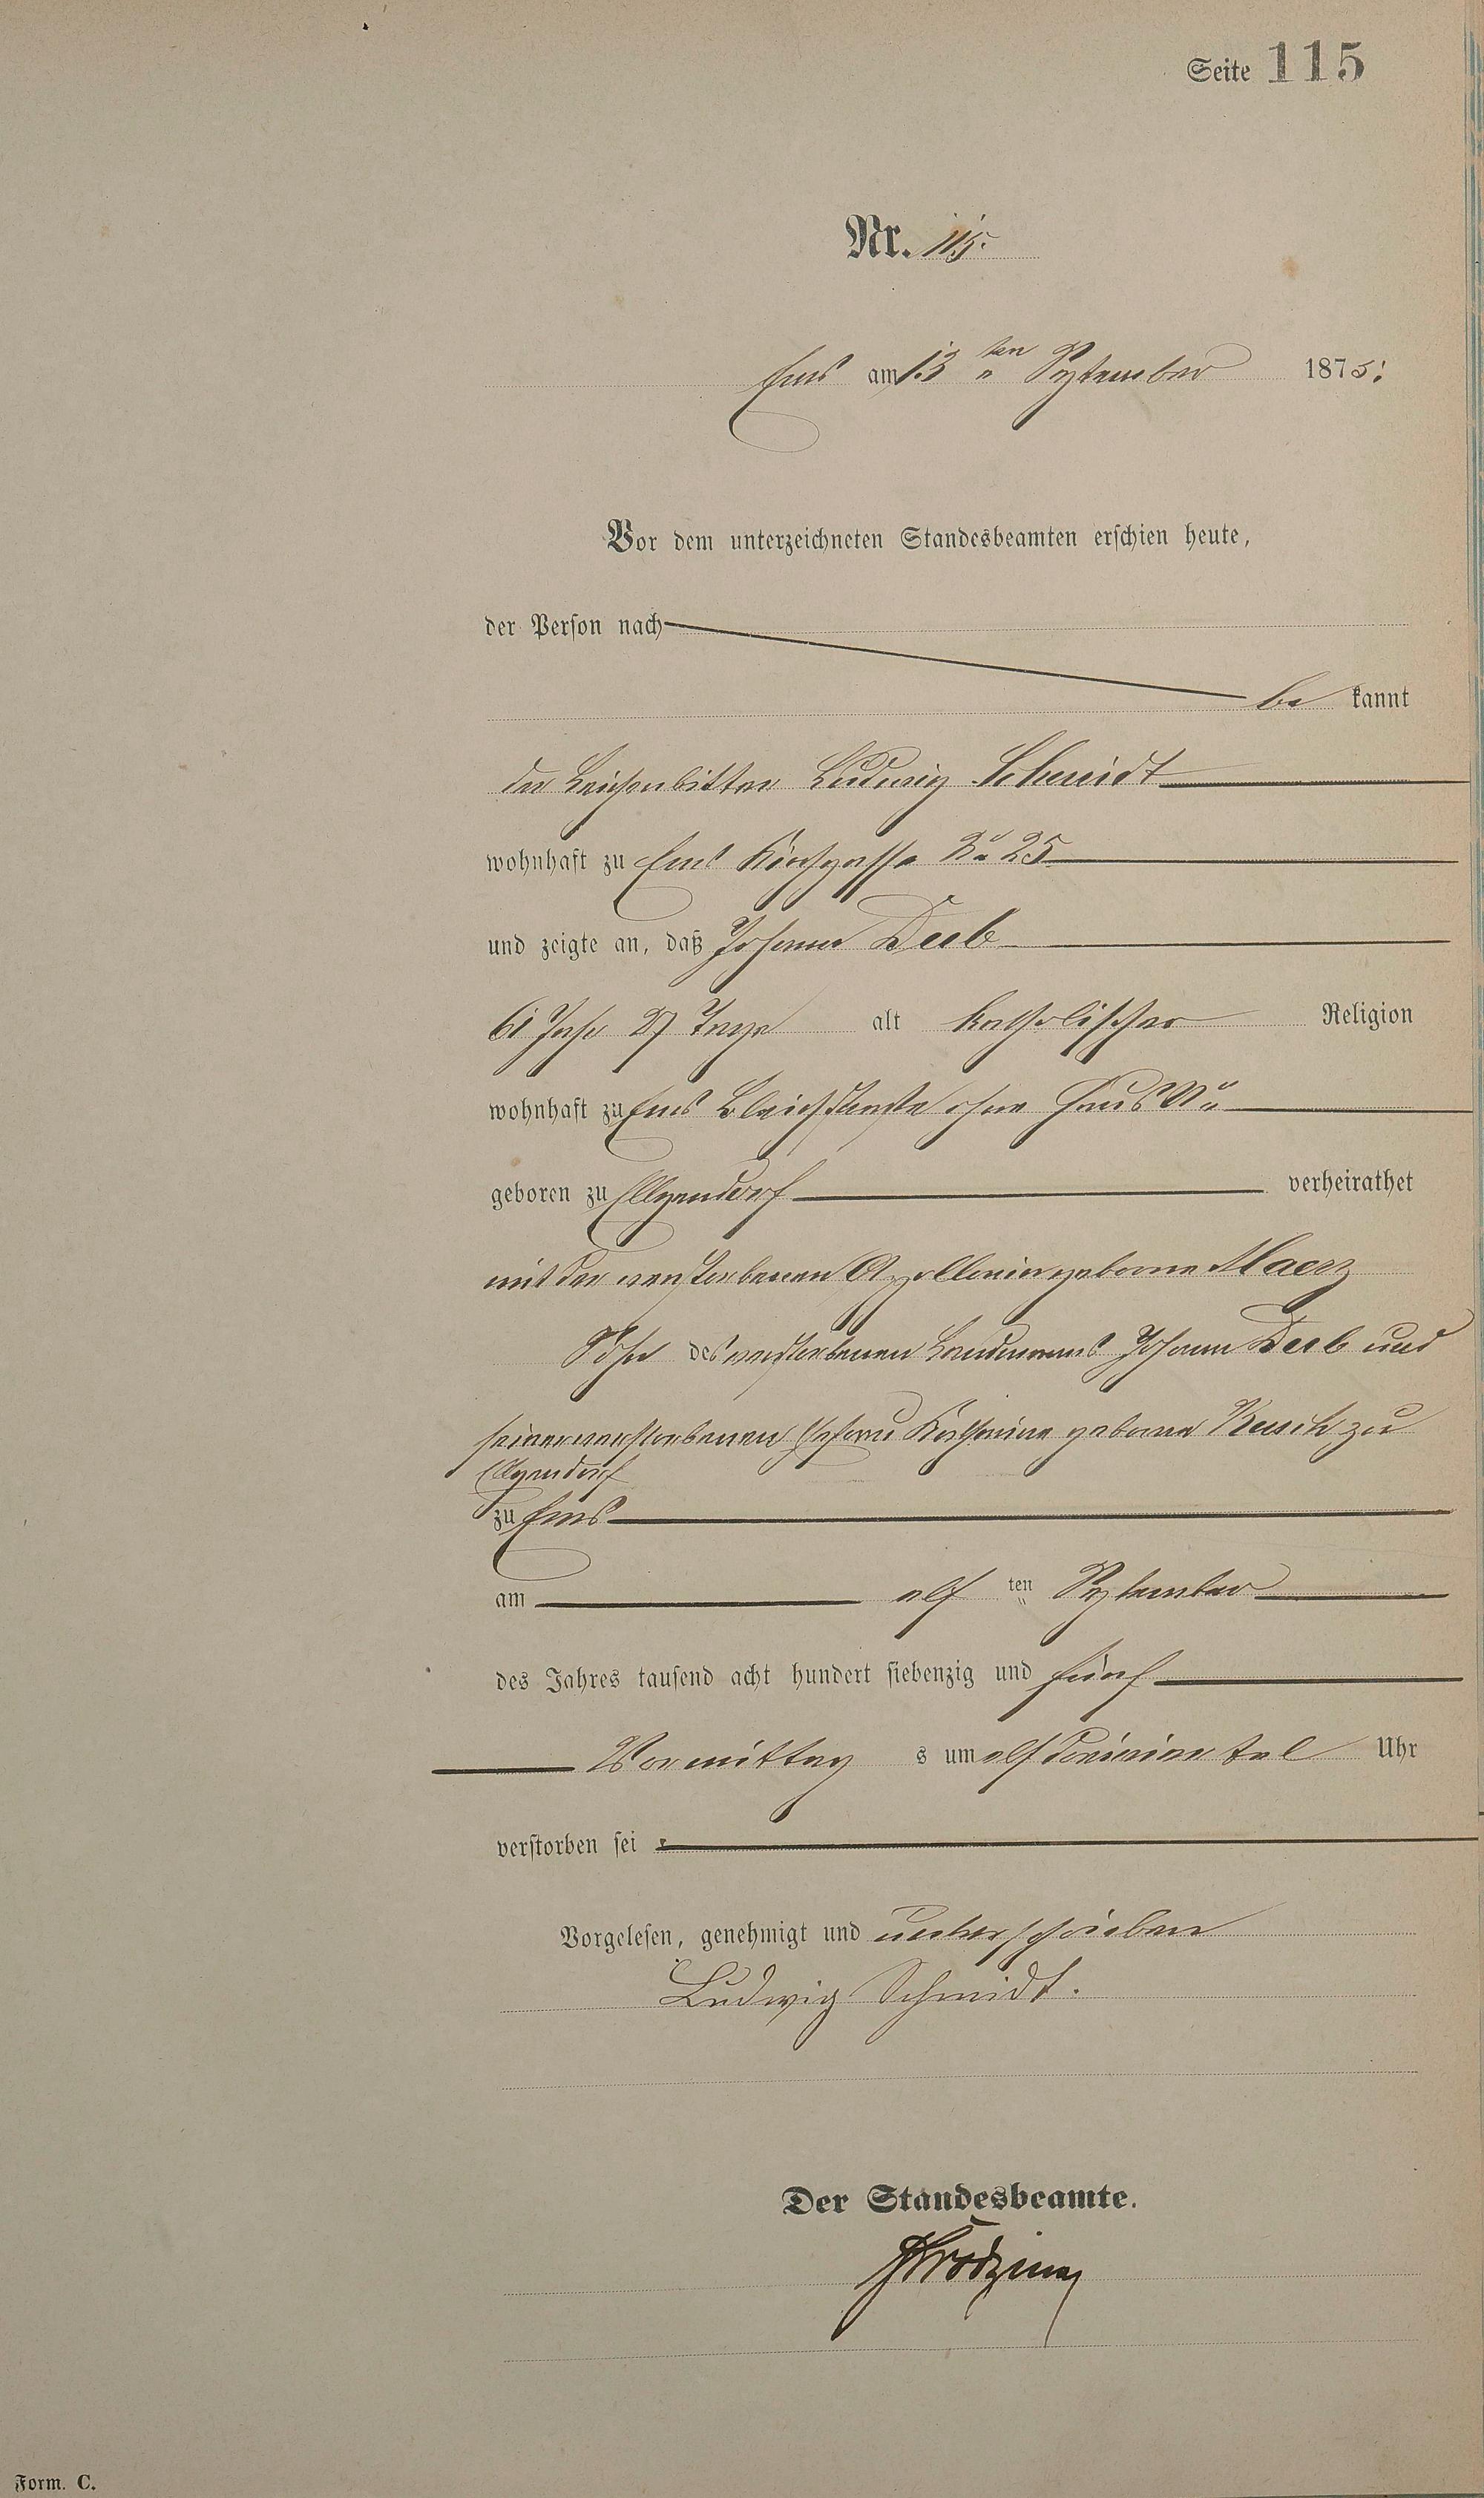 Seite 115
Nr. 115.
Ems am 13ten September 1875.
Vor dem unterzeichneten Standesbeamten erschien heute,
der Person nach
be kannt
der Leichenbitter Ludwig Schmidt
wohnhaft zu Ems Kirchgasse No 25
und zeigte an, daß Johann Deeb
61 Jahr 27 Tage alt katholischer Religion
wohnhaft zu Ems Bleichstraße ohne Haus No
geboren zu Elgendorf verheirathet
mit der verstorbenen Apollonia geborne Maerz
Sohn des verstorbenen Landmanns Johann Deeb und
seiner verstorbenen Ehefrau Katharina geborne Kusch zu
Elgendorf
zu Ems
am elf ten September
des Jahres tausend acht hundert siebenzig und fünf
Vormittag s um elf dreiviertel Uhr
verstorben sei
Vorgelesen, genehmigt und unterschrieben
Ludwig Schmidt.
Der Standesbeamte.
Form. C.